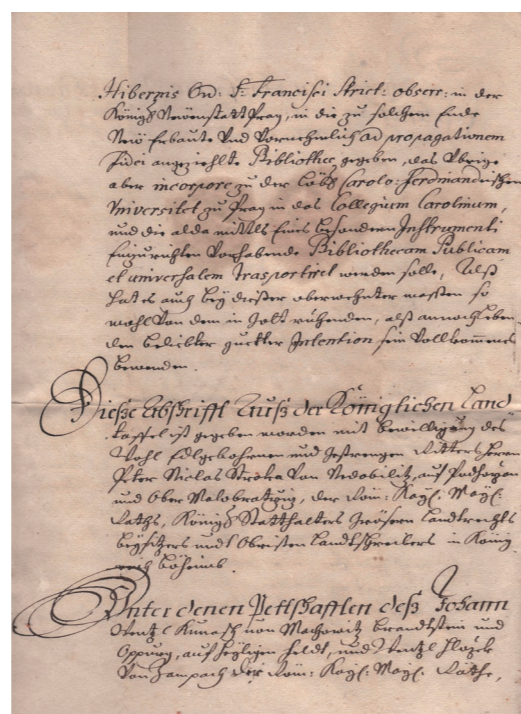 Hibernis Ord: S: Francisci Strict: observ: in der
Königl Newenstatt Prag, in die zu solchem Ende
New Erbaute Und Vornehmlich ad propagationem
fidei angezihlte Bibliothec, gegeben, das Übrige
aber incorpore zu der Löbl Carolo: Ferdinandeischen
Universitet zu Prag in das Collegium Carolinum,
und die alda mittls Eines besondern Instrumenti
Einzurichten Vorhabende Bibliothecam Publicam
et universalem trasportiret werden solle, Alß
hat es auch bey dießer oberwehnter maßen so
wohl Von dem in Gott ruhenden, alß annoch leben
den beliebter guetter Intention sein Vollkommenes
bewenden.
Dieße Abschrifft Auß der Königlichen Land
taffel ist gegeben worden mit bewilligung des
Wohl Edlgebohrnen und Gestrengen Ritters Herrn
Peter Niclas Straka Von Nedobilitz, auf
und Ober Malobratrzitz, der Röm: Kayl: Mayl:
Raths, Königl Statthalters Grösern Landtrechts
beysitzers undt Obristen Landtschreibers in König
reich böheimb.
Unter denen Pettschafften deß Johann
Wentzl Kunasch von Machowitz
Oppurg, auf Heyligen Feldt, und Wentzl
Von Zampach der Röm: Kayl: Mayl: Räthe,